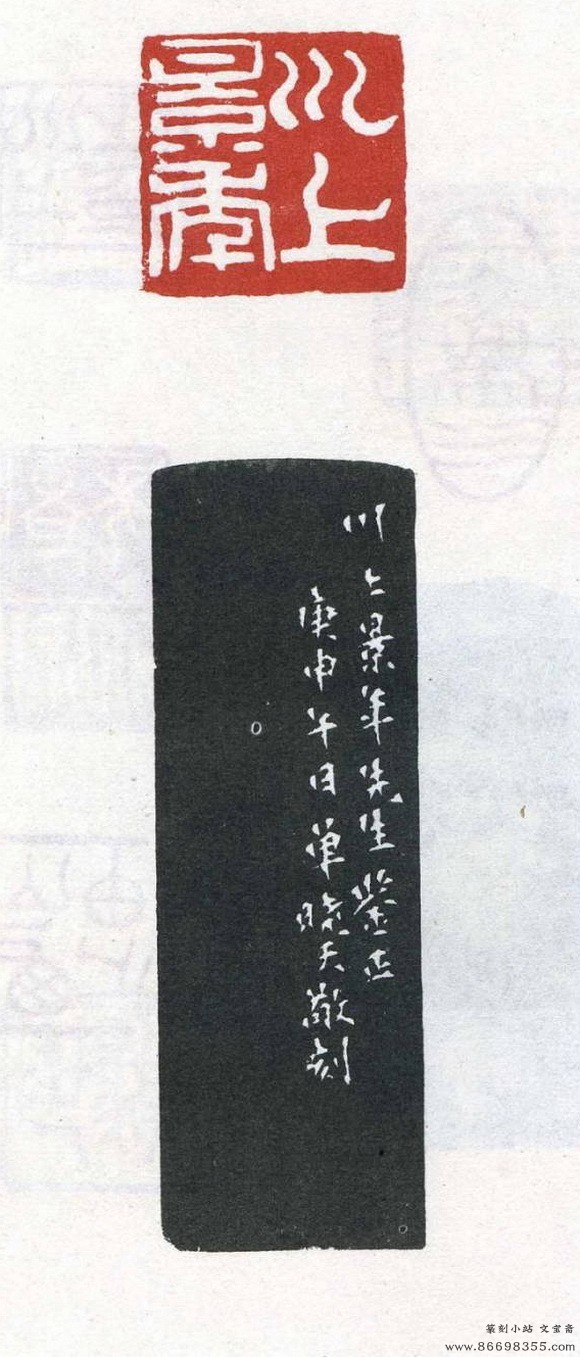 川上
景年
川上景年先生鉴正
庚申午日单晓天敬刻
篆刻小站 文宝斋
www.86698355.com